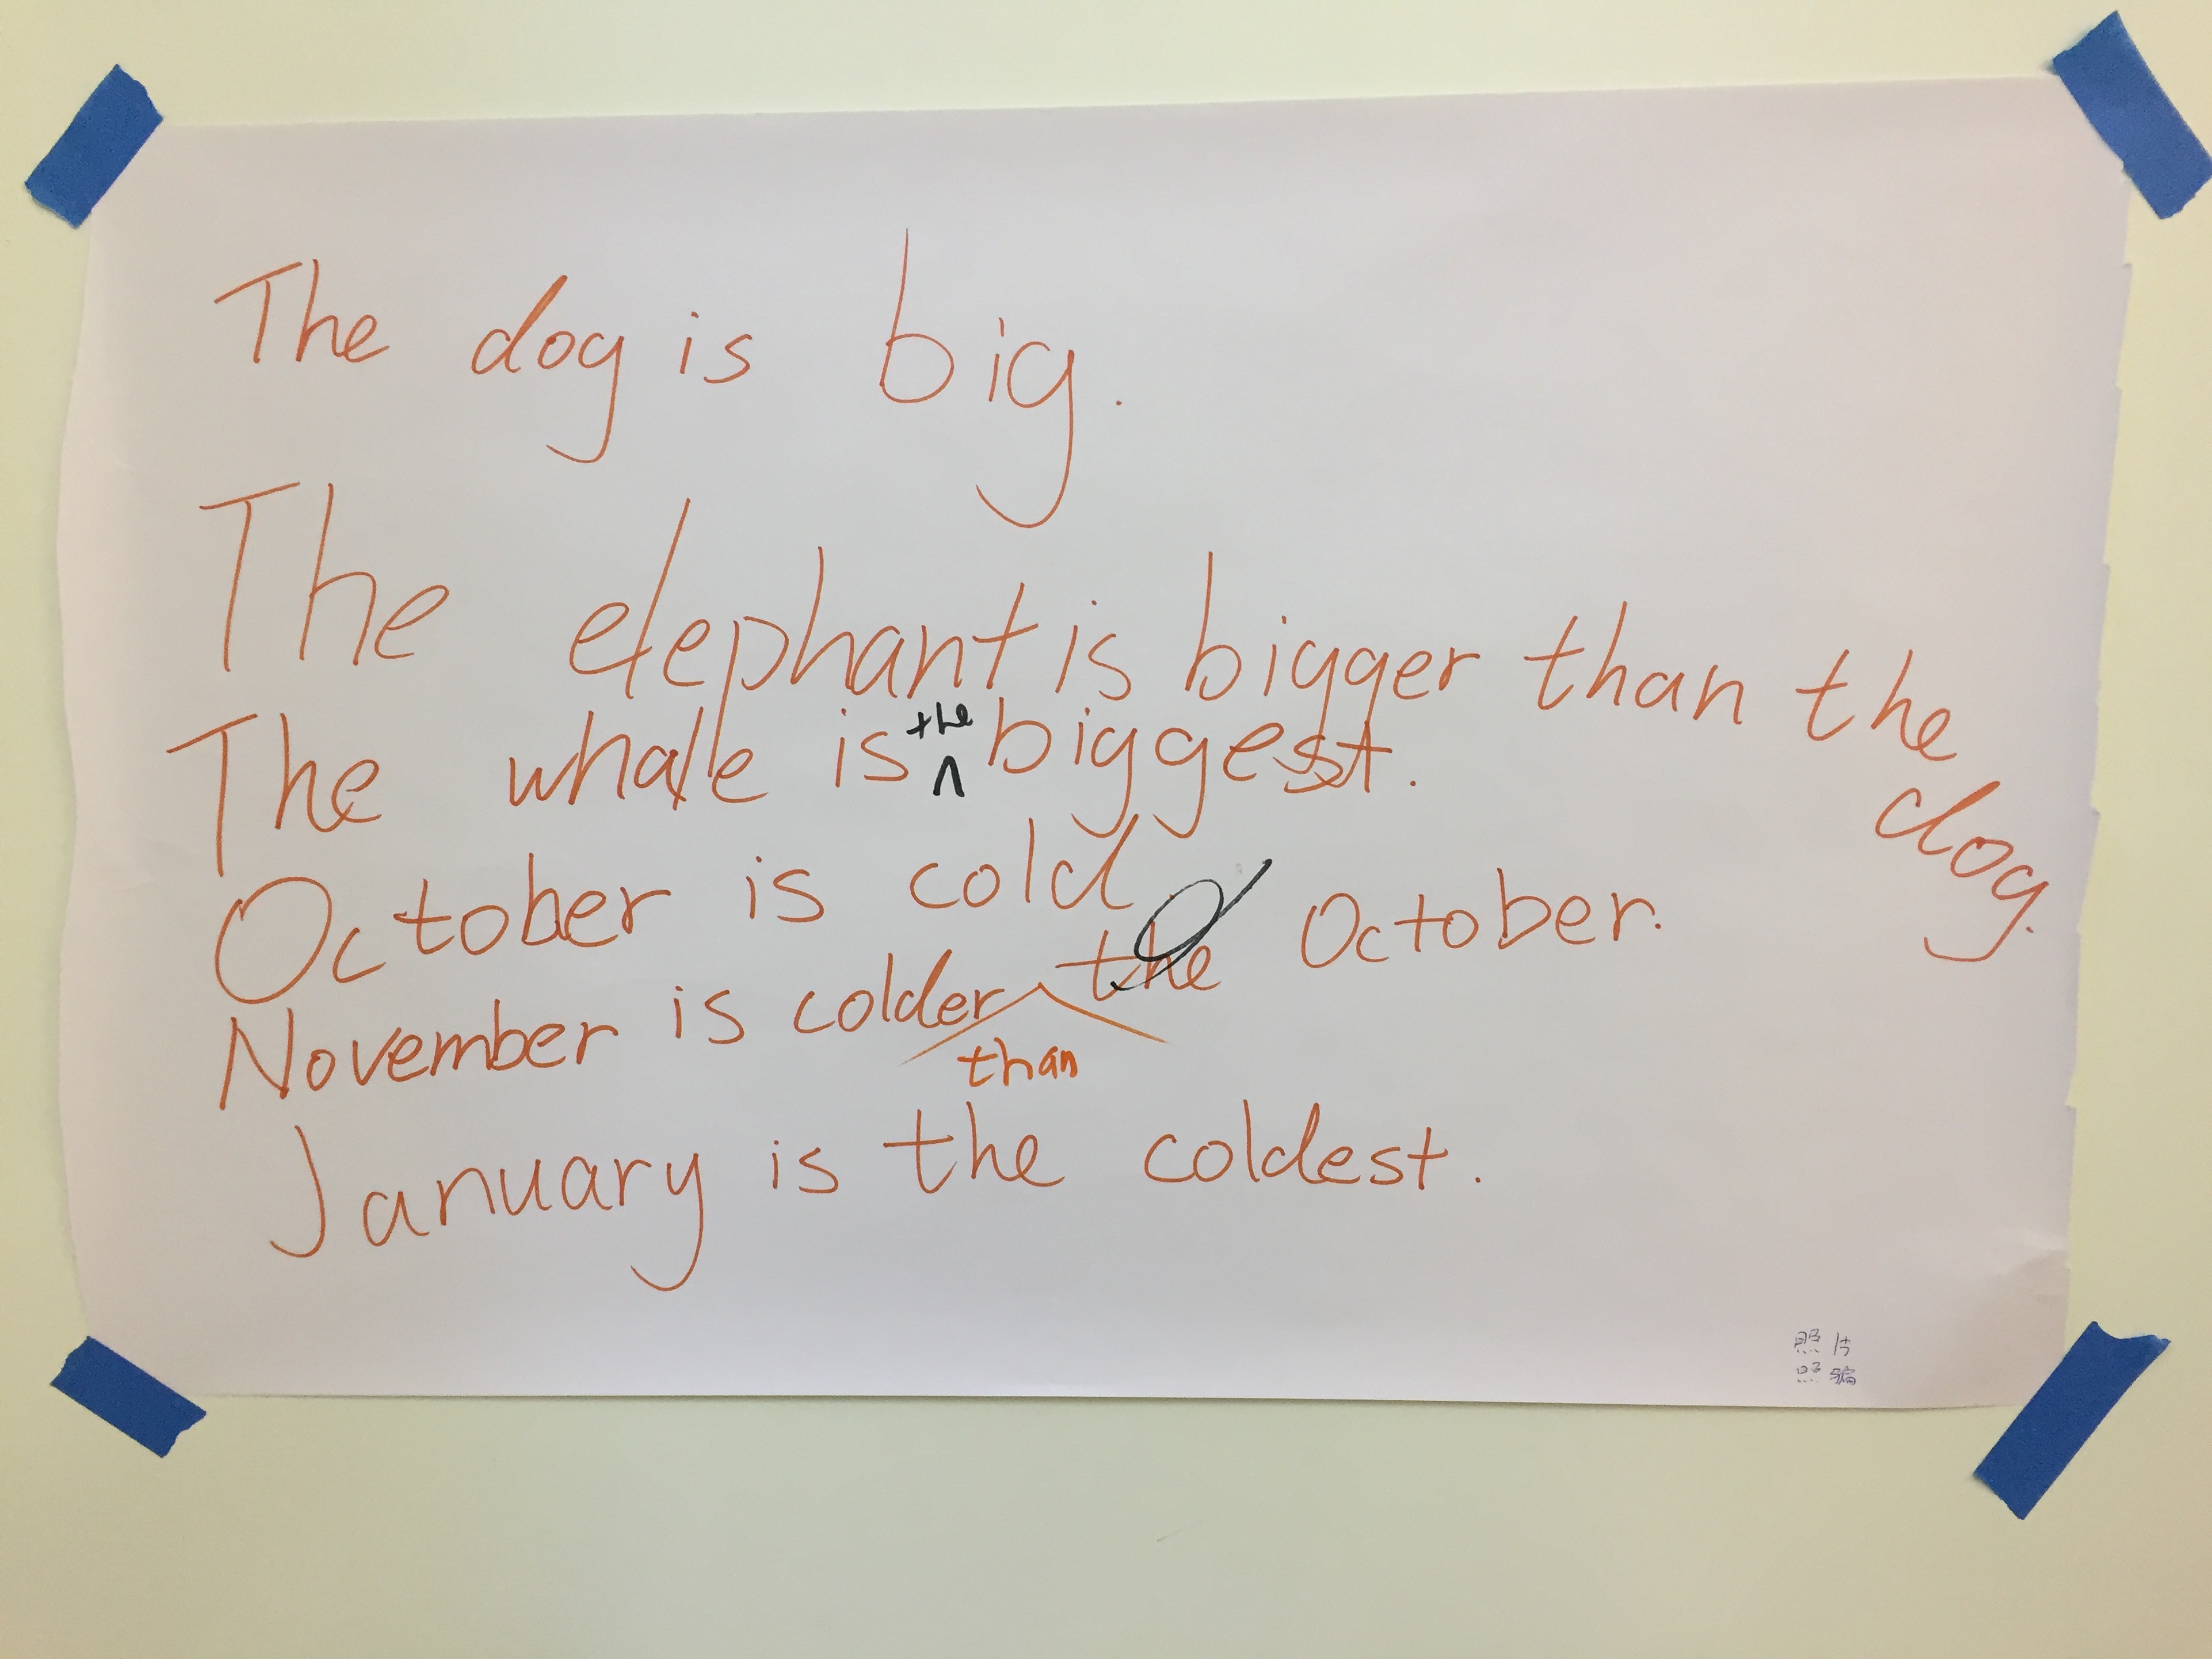 The dog is big.
The elephant is bigger than the dog.
The whale is the biggest.
October is cold
November is colder than the October.
January is the coldest.
照片
照骗